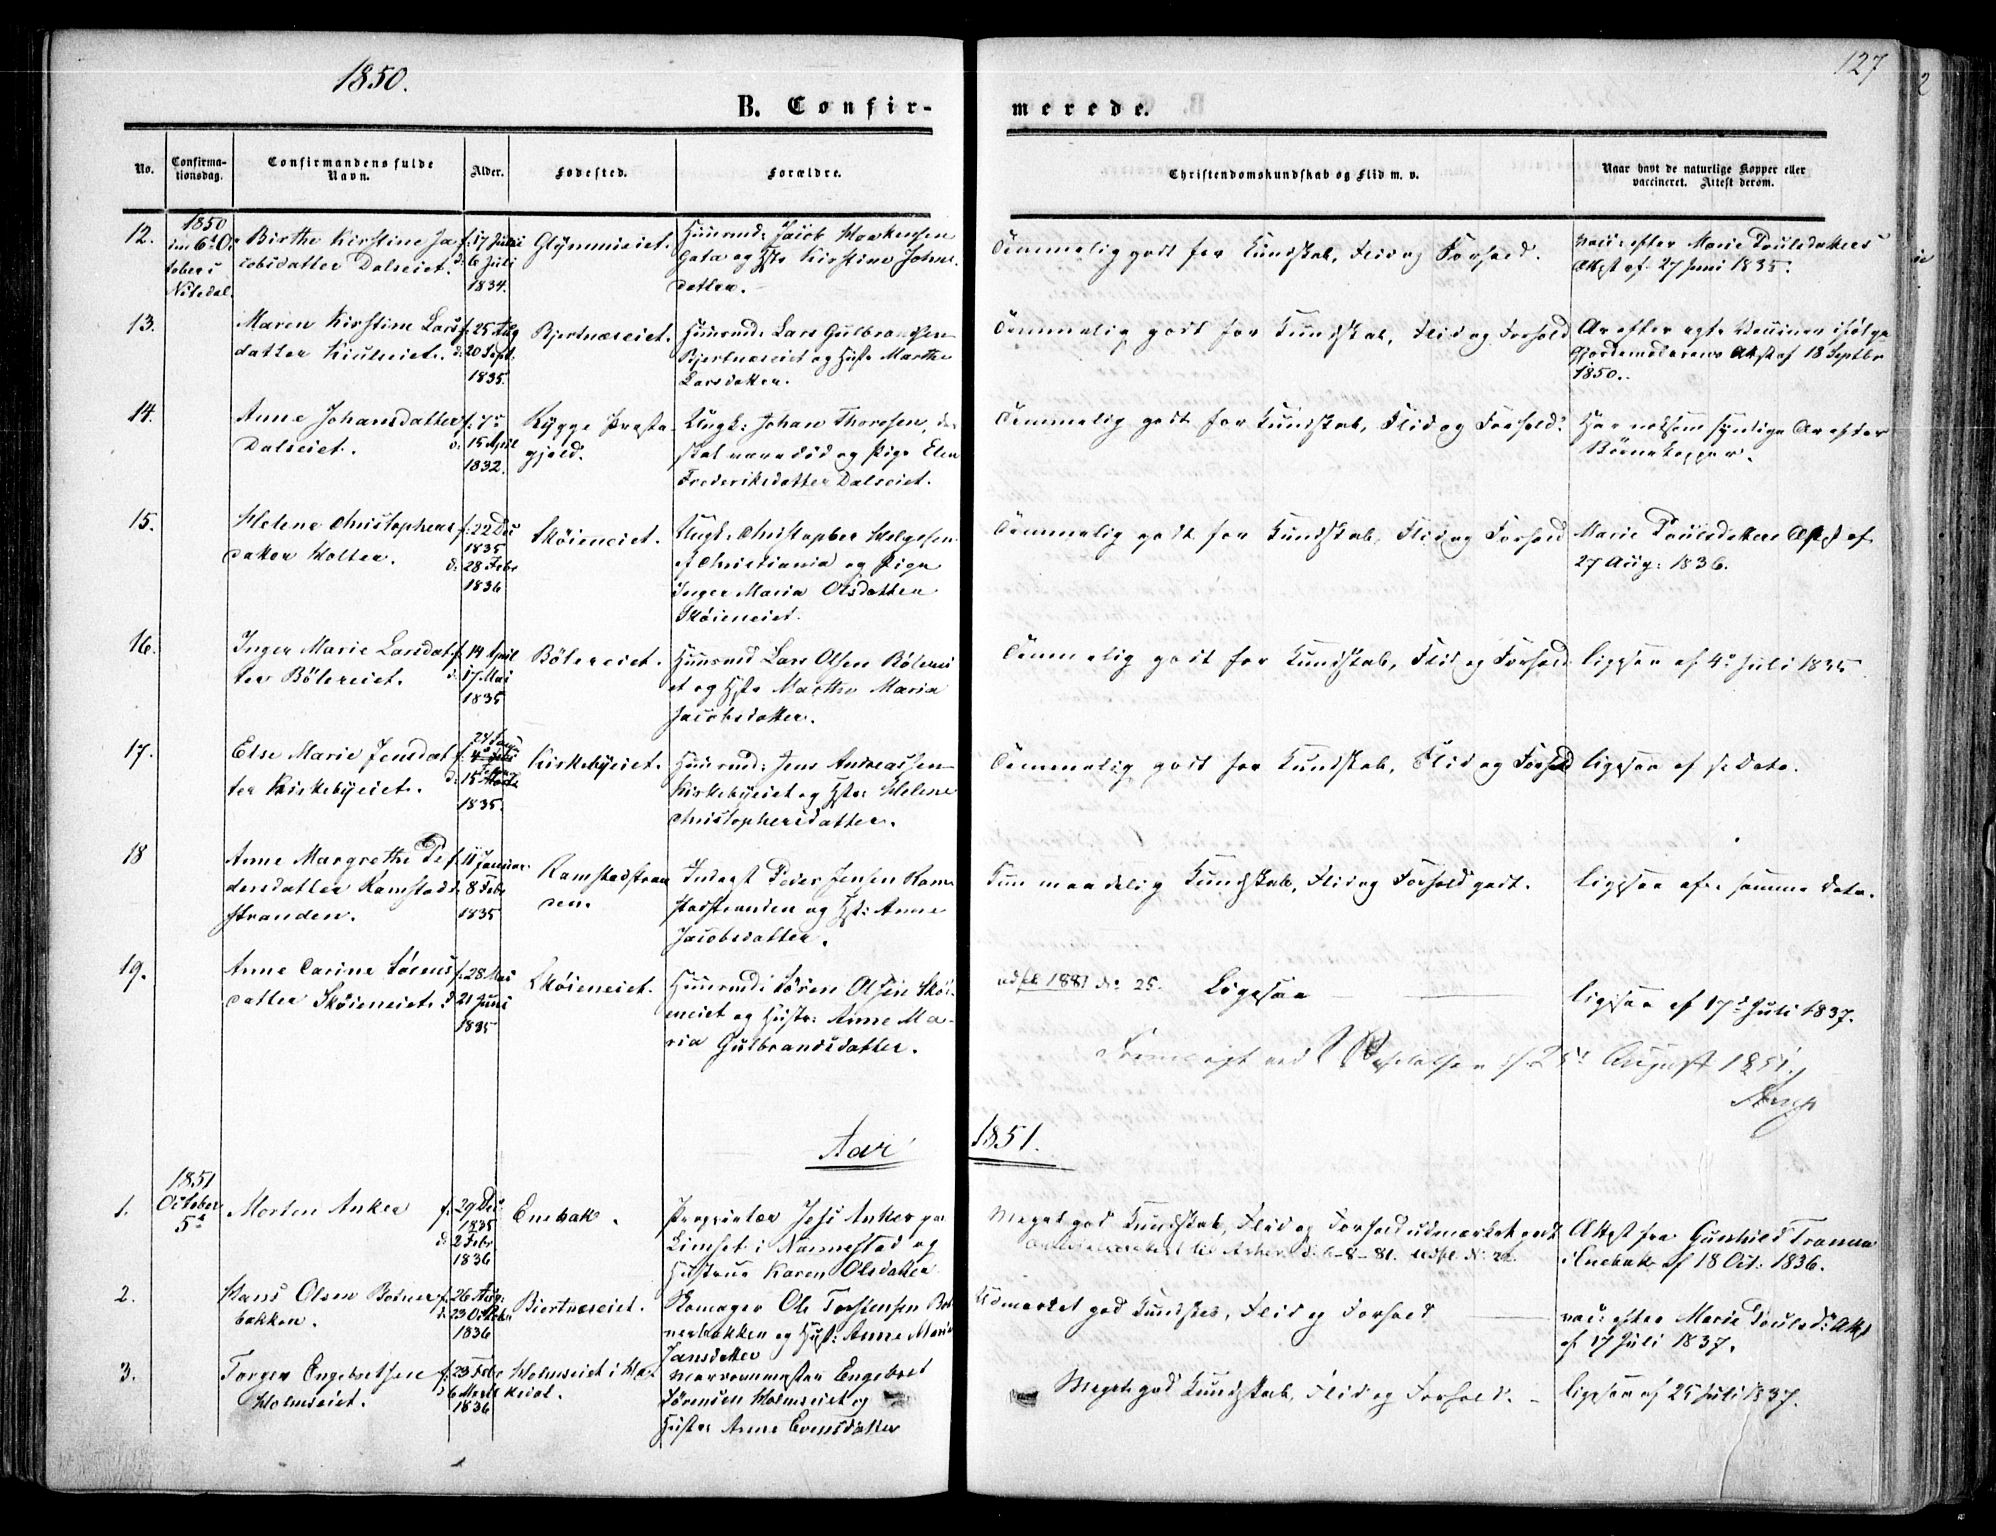 1850.
127
B. Confir-
merede.
No.
Confirma-
tionsdag.
Confirmandens fulde
Navn.
Alder.
Fødested.
Forældre.
Christendomskundskab og Flid m. v.
Naar havt de naturlige Kopper eller
vaccineret. Attest derom.
12.
1850
den 6te Oc
tober i
Nitedal.
Birthe Kirstine Ja
cobsdatter Dalseiet.
f. 17 Juni
d. 6 Juli
1834.
Glÿmmeiet.
Huusmd: Jacob Haakensen
og Hst. Kirstine Johns
datter.
Temmelig godt for Kundskab, Flid og Forhold.
vacc: efter Marie Poulsdatters
Attest af 27 Juni 1835.
13.
Maren Kirstine Lars
datter
f. 25 Aug
d. 20 Sept.
1835.
Bjertnæseiet.
Huusmd: Lars Gulbrandsen
Bjertnæseiet og Hust. Marthe
Larsdatter.
Temmelig godt for Kundskab, Flid og Forhold
Ar efter ægte Vacciner ifølge
Gjordemoderens Attest af 18 Septbr
1850.
14.
Anne Johansdatter
Dalseiet.
f. 7de
d. 15 April
1832.
Rÿgge Præste
gjeld.
Ungk: Johan Thoresen, der
skal være død og Pige Elen
Frederiksdatter Dalseiet.
Temmelig godt for Kundskab, Flid og Forhold.
Har noksom synlige Ar efter
Børnekopper.
15.
Helene Christophers
datter Holter.
f. 22 Dec
1835
d: 28 Febr
1836
Skøieneiet.
Ungk. Christopher Helgesen
af Christiania og Pige
Inger Maria Olsdatter
Skøieneiet.
Temmelig godt for Kundskab, Flid og Forhold
Marie Poulsdatters Attest af
27 Aug: 1836.
16.
Inger Marie Larsdat
ter Bölereiet.
f. 14 April
d. 17 Mai
1835
Bölereiet.
Huusmd Lars Olsen Bölerei
et og Hst. Marthe Maria
Jacobsdatter.
Temmelig godt for Kundskab, Flid og Forhold
ligesaa af 4de Juli 1835
17.
Else Marie Jensdat
ter Kirkebÿeiet.
d. 15
1835.
Kirkebÿeiet.
Huusmd: Jens Andreassen
Kirkebÿeiet og Hst: Helene
Christophersdatter.
Temmelig godt for Kundskab, Flid og Forhold
ligesaa af s: Dato.
18
Anne Margrethe Pe
dersdatter Ramstad
stranden.
f. 11 Januar
8 Febr
1835
Ramstadstran
den.
Inderst Peder Jensen Ram
stadstranden og Hst: Anne
Jacobsdatter.
Kun maadelig Kundskab, Flid og Forhold godt.
ligesaa af samme Dato.
19.
Anne Carine Sørens
datter Skøieneiet.
f. 28 Mai
d. 21 Juni
1835
Skøieneiet.
Huusmd: Sören Olsen Skøi
eneiet og Hustr: Anne Ma
ria Gulbrandsdatter.
udst. 1881 No 25.
Ligesaa
ligesaa af 17de Juli 1837.
Fremlagt ved Visitatsen d. 25de August 1851.
Arup
Aar
1851.
1.
1851
October
5te
Morten Anker
f. 29 Dec.
1835
d. 2 Febr
1836
Enebak.
Proprietær Jess Anker paa
Limset i Nannestad og
Hustrue Karen Olsdatter
Meget god Kundskab, Flid og Forhold udmærket godt
til Asker d. 6-8-81. udst. N: 22.
Attest fra Gunhild Tranna
i Enebak af 18 Oct: 1836.
2.
Hans Olsen Botner
bakken.
f. 26 Aug:
d. 23 October
1836
Biertnæseiet.
Skomager Ole Torstensen Bot
nerbakken og Hust: Anne Marie
Jansdatter
Udmærket god Kundskab, Flid og Forhold
vac: efter Marie Poulsd: Attst
af 17 Juli 1837.
3.
Torger Engebretsen
Holmseiet.
f. 23 Febr
d. 6 Marts
1836
Holmseiet i Hak
kedal.
Marsovnmester Engebret
Sörensen Holmseiet og
Hustr Anne Evensdatter
Meget god Kundskab, Flid og Forhold.
ligesaa af 25 Juli 1837.